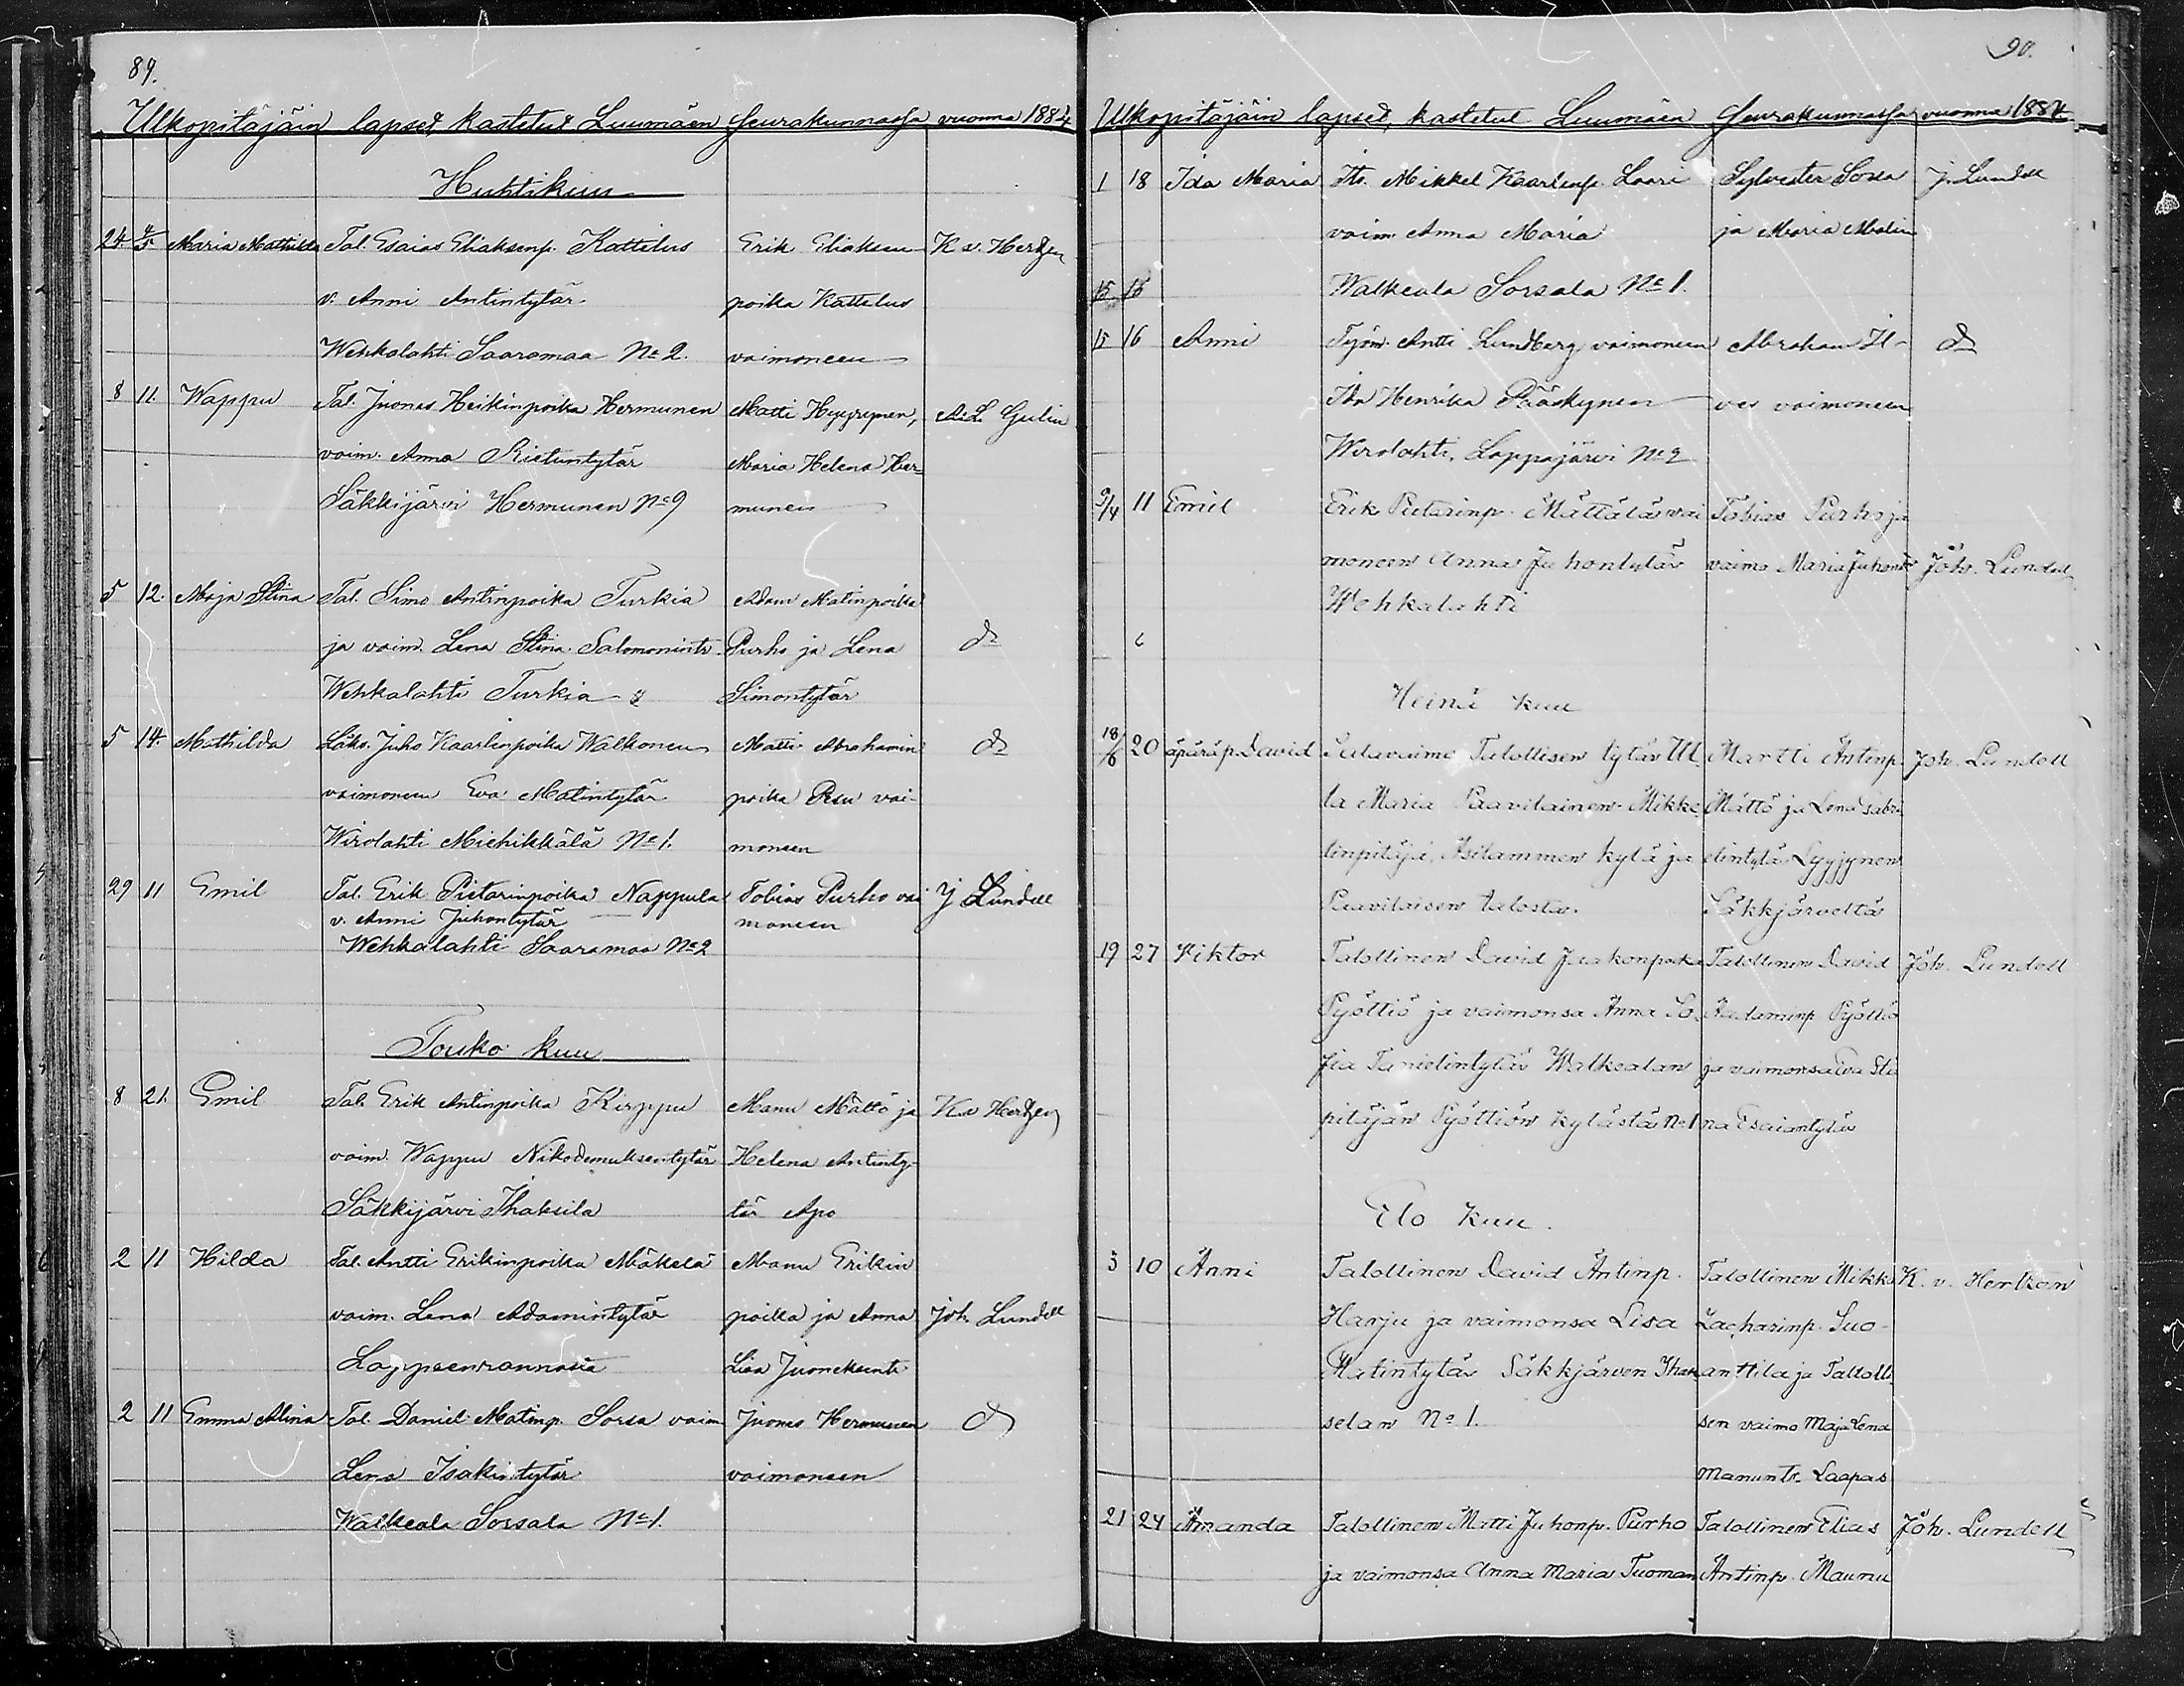 89.
Ulkopitäjäin lapset kastetut Luumäen Seurakunnassa vuonna 1884
Huhtikuu
24 4/5 Maria Mathilda Tal. Esaias Eliaksenp. Kattelus Erik Eliaksen K v. Hertzen
v. Anni Antintytär poika Kattelus
Wehkalahti Saaramaa No 2. vaimoneen
8 11. Wappu Tal. Juonas Heikinpoika Hermunen Matti Hyyrynen, A. L. Gulin
vaim. Anna Rietuntytär Maria Helena Her-
Säkkijärvi Hermunen No 9 munen
5 12. Maja Stina Tal. Simo Antinpoika Turkia Adam Matinpoika
ja vaim. Lena Stina Salomonintr. Purho ja Lena do
Wehkalahti Turkia Simontytär
5 14. Mathilda Läks. Juho Kaarlenpoika Walkonen Matti Abrahamin do
vaimoneen Eva Matintytär poika Pesu vai-
Wirolahti Miehikkälä No 1. moneen
29 11 Emil Tal. Erik Pietarinpoika Nappula Tobias Purho vai J Lundell
v. Anni Juhontytär moneen
Wehkalahti Saaramaa No 2
Touko kuu
8 21. Emil Tal. Erik Antinpoika Kirppu Manu Mättö ja K.v Hertzen
vaim. Wappu Nikodemuksentytär Helena Antinty-
Säkkijärvi Ihaksila tär Apo
2 11 Hilda Tal. Antti Erikinpoika Mäkelä Manu Erikin
vaim. Lena Adamintytär poika ja Anna Joh. Lundell
Lappeenrannasta Lisa Juoneksentr
2 11 Emma Alina Tal. Daniel Matinp. Sorsa vaim Juonas Hermunen do
Lena Isakintytär vaimoneen
Walkeala Sorsala No 1.
90.
Ulkopitäjäin lapset, kastetut Luumäen Seurakunnassa vuonna 1884.
1 18 Ida Maria Its. Mikkel Kaarlenp. Laari Sylvester Sorsa J. Lundell
vaim. Anna Maria ja Maria Malin
15 16 Walkeala Sorsala No 1.
15 16 Anni Työm. Antti Lundberg vaimoneen Abraham Il- do
Ida Henrika Pääskynen ves vaimoneen
Wirolahti, Lappajärvi No 2
9/4 11 Emil Erik Pietarinp. Mättälä vai Tobias Purho ja
moneen Anna Juhontytär vaimo Maria Juhontr Joh. Lundell
Wehkalahti
6
Heinä kuu
18/6 20 äpäräp. David Itävaimo Talollisen tytär Ul Martti Antinp. Joh. Lundell
la Maria Paavilainen Mikke Mättö ja Lena Gabri
linpitäjä, Asilammen kylä ja elintytär Lyyjynen
Paavilaisen talosta. Säkkjärveltä
19 27 Wiktor Talollinen David Jaakonpoika Talollinen David Joh. Lundell
Pyöttiö ja vaimonsa Anna So Aadaminp Pyöttiö
fia Tanielintytär Walkealan ja vaimonsa Eva Sti
pitäjän Pyöttiön kylästä No 1 na Esaiantytär
Elo kuu.
3 10 Anni Talollinen David Antinp. Talollinen Mikko K. v. Hertzen
Harju ja vaimonsa Lisa Zacharinp. Suo-
Matintytär Säkkjärven Ihak anttila ja Talolli
selan No 1. sen vaimo Maja Lena
Manuntr. Laapas
21 24 Amanda Talollinen Matti Juhonp. Purho Talollinen Elias Joh. Lundell
ja vaimonsa Anna Maria Tuoman Antinp. Maunu